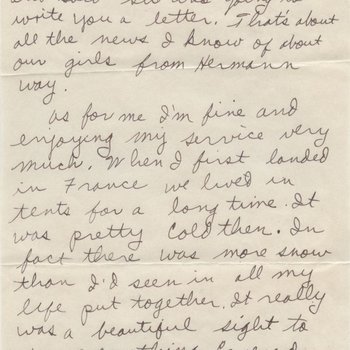 write you a letter. Thats about
all the news I know of about
our girls from Hermann
way.
as for me I'm fine and
enjoying my service very
much. When I first landed
in France we lived in
tents for a long time. It
was pretty cold then. In
fact there was more snow
than I'd seen in all my
life put together. It really
was a beautiful sight to